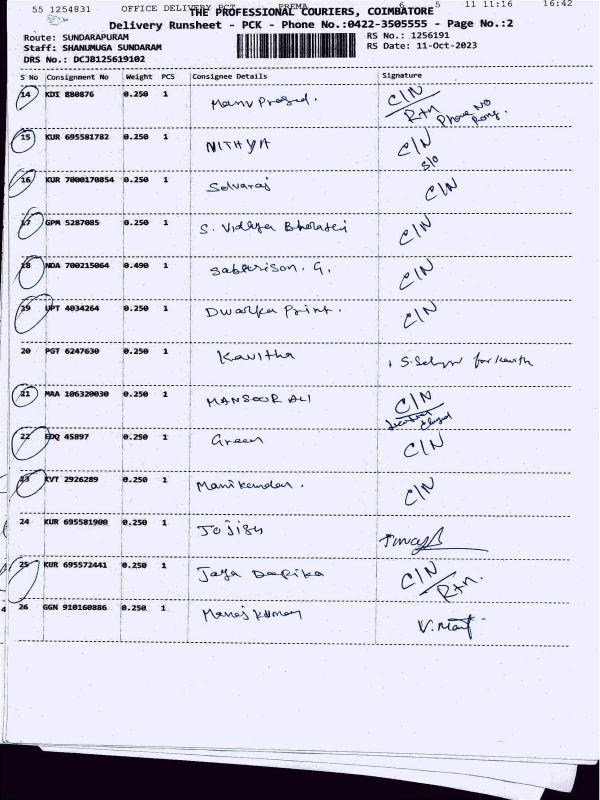 55 1254831 OFFICE DELIVERY PCT PREMA 6 5 11 11:16 16:42
THE PROFESSIONAL COURIERS, COIMBATORE
Delivery Runsheet - PCK - Phone No.:0422-3505555 - Page No.:2
Route: SUNDARAPURAM RS No.: 1256191
Staff: SHANUMUGA SUNDARAM RS Date: 11-Oct-2023
DRS No.: DCJB125619102
S No Consignment No Weight PCS Consignee Details Signature
14 KDI 880876 0.250 1 Manu Prasad. C/N
Rtn Phone No
15 KUR 695581782 0.250 1 NITHYA C/N
S/O
16 KUR 7000170854 0.250 1 Selvaraj C/N
17 GPM 5287085 0.250 1 S. Vidhya Bharathi C/N
18 NDA 700215064 0.490 1 G. C/N
19 UPT 4034264 0.250 1 Dwarka Print. C/N
20 PGT 6247630 0.250 1 Kavitha for
21 MAA 106320030 0.250 1 MANSOOR ALI C/N
22 EDQ 45897 0.250 1 Green C/N
23 KVT 2926289 0.250 1 Manikandan. C/N
24 KUR 695581900 0.250 1 Jojish
25 KUR 695572441 0.250 1 Jaya Deepika C/N
Rtn.
26 GGN 910160886 0.250 1 Manoj Kumar